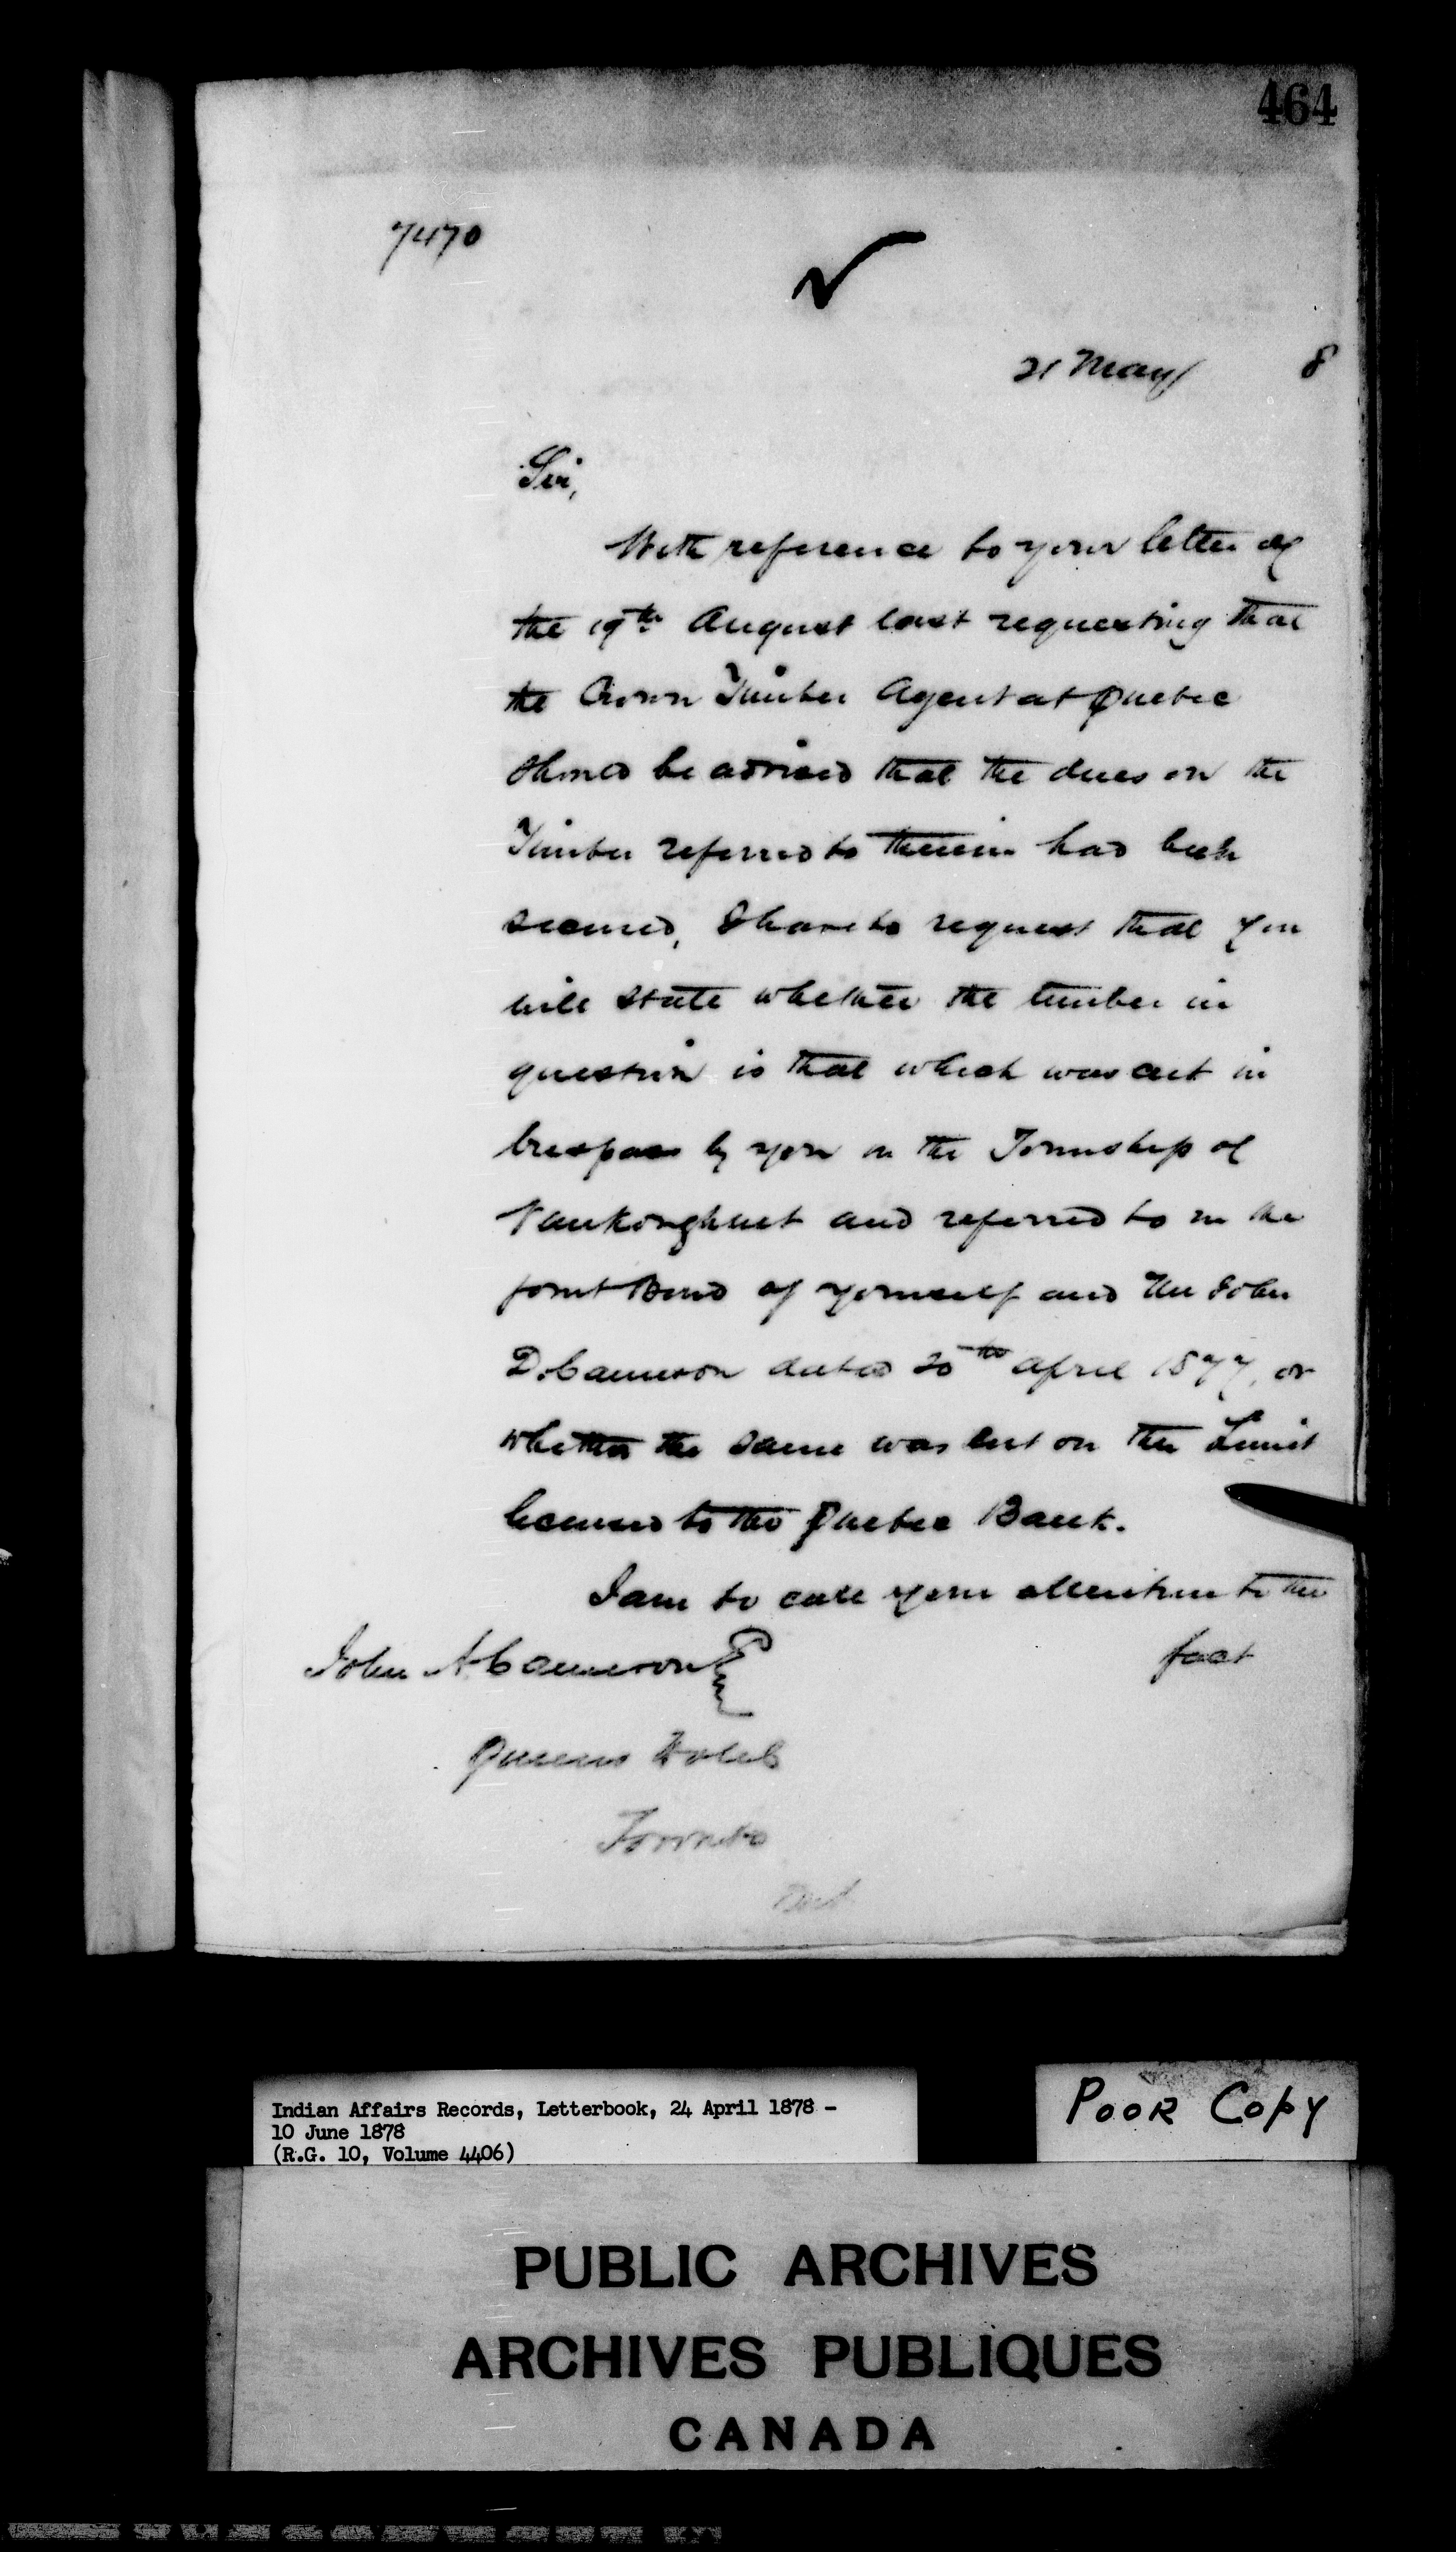 464
7470
21 May 8
Sir,
With reference to your letter of
the 19th August last requesting that
the Crown Timber Agent at Quebec
should be advised that the dues on the
Timber referred to therein had been
secured, I have to request that you
will state whether the timber in
question is that which was cut in
trespass by you in the Township of
Vankoughnet and referred to in the
joint Bond of yourself and Mr John
D. Cameron dated 20th April 1877, or
whether the same was cut on the Limit
licensed to the Quebec Bank.
I am to call your attention to the
fact
John A Cameron Esq
Queens Hotel
Toronto
Indian Affairs Records, Letterbook, 24 April 1878 -
10 June 1878
(R.G. 10, Volume 4406)
POOR COPY
PUBLIC ARCHIVES
ARCHIVES PUBLIQUES
CANADA